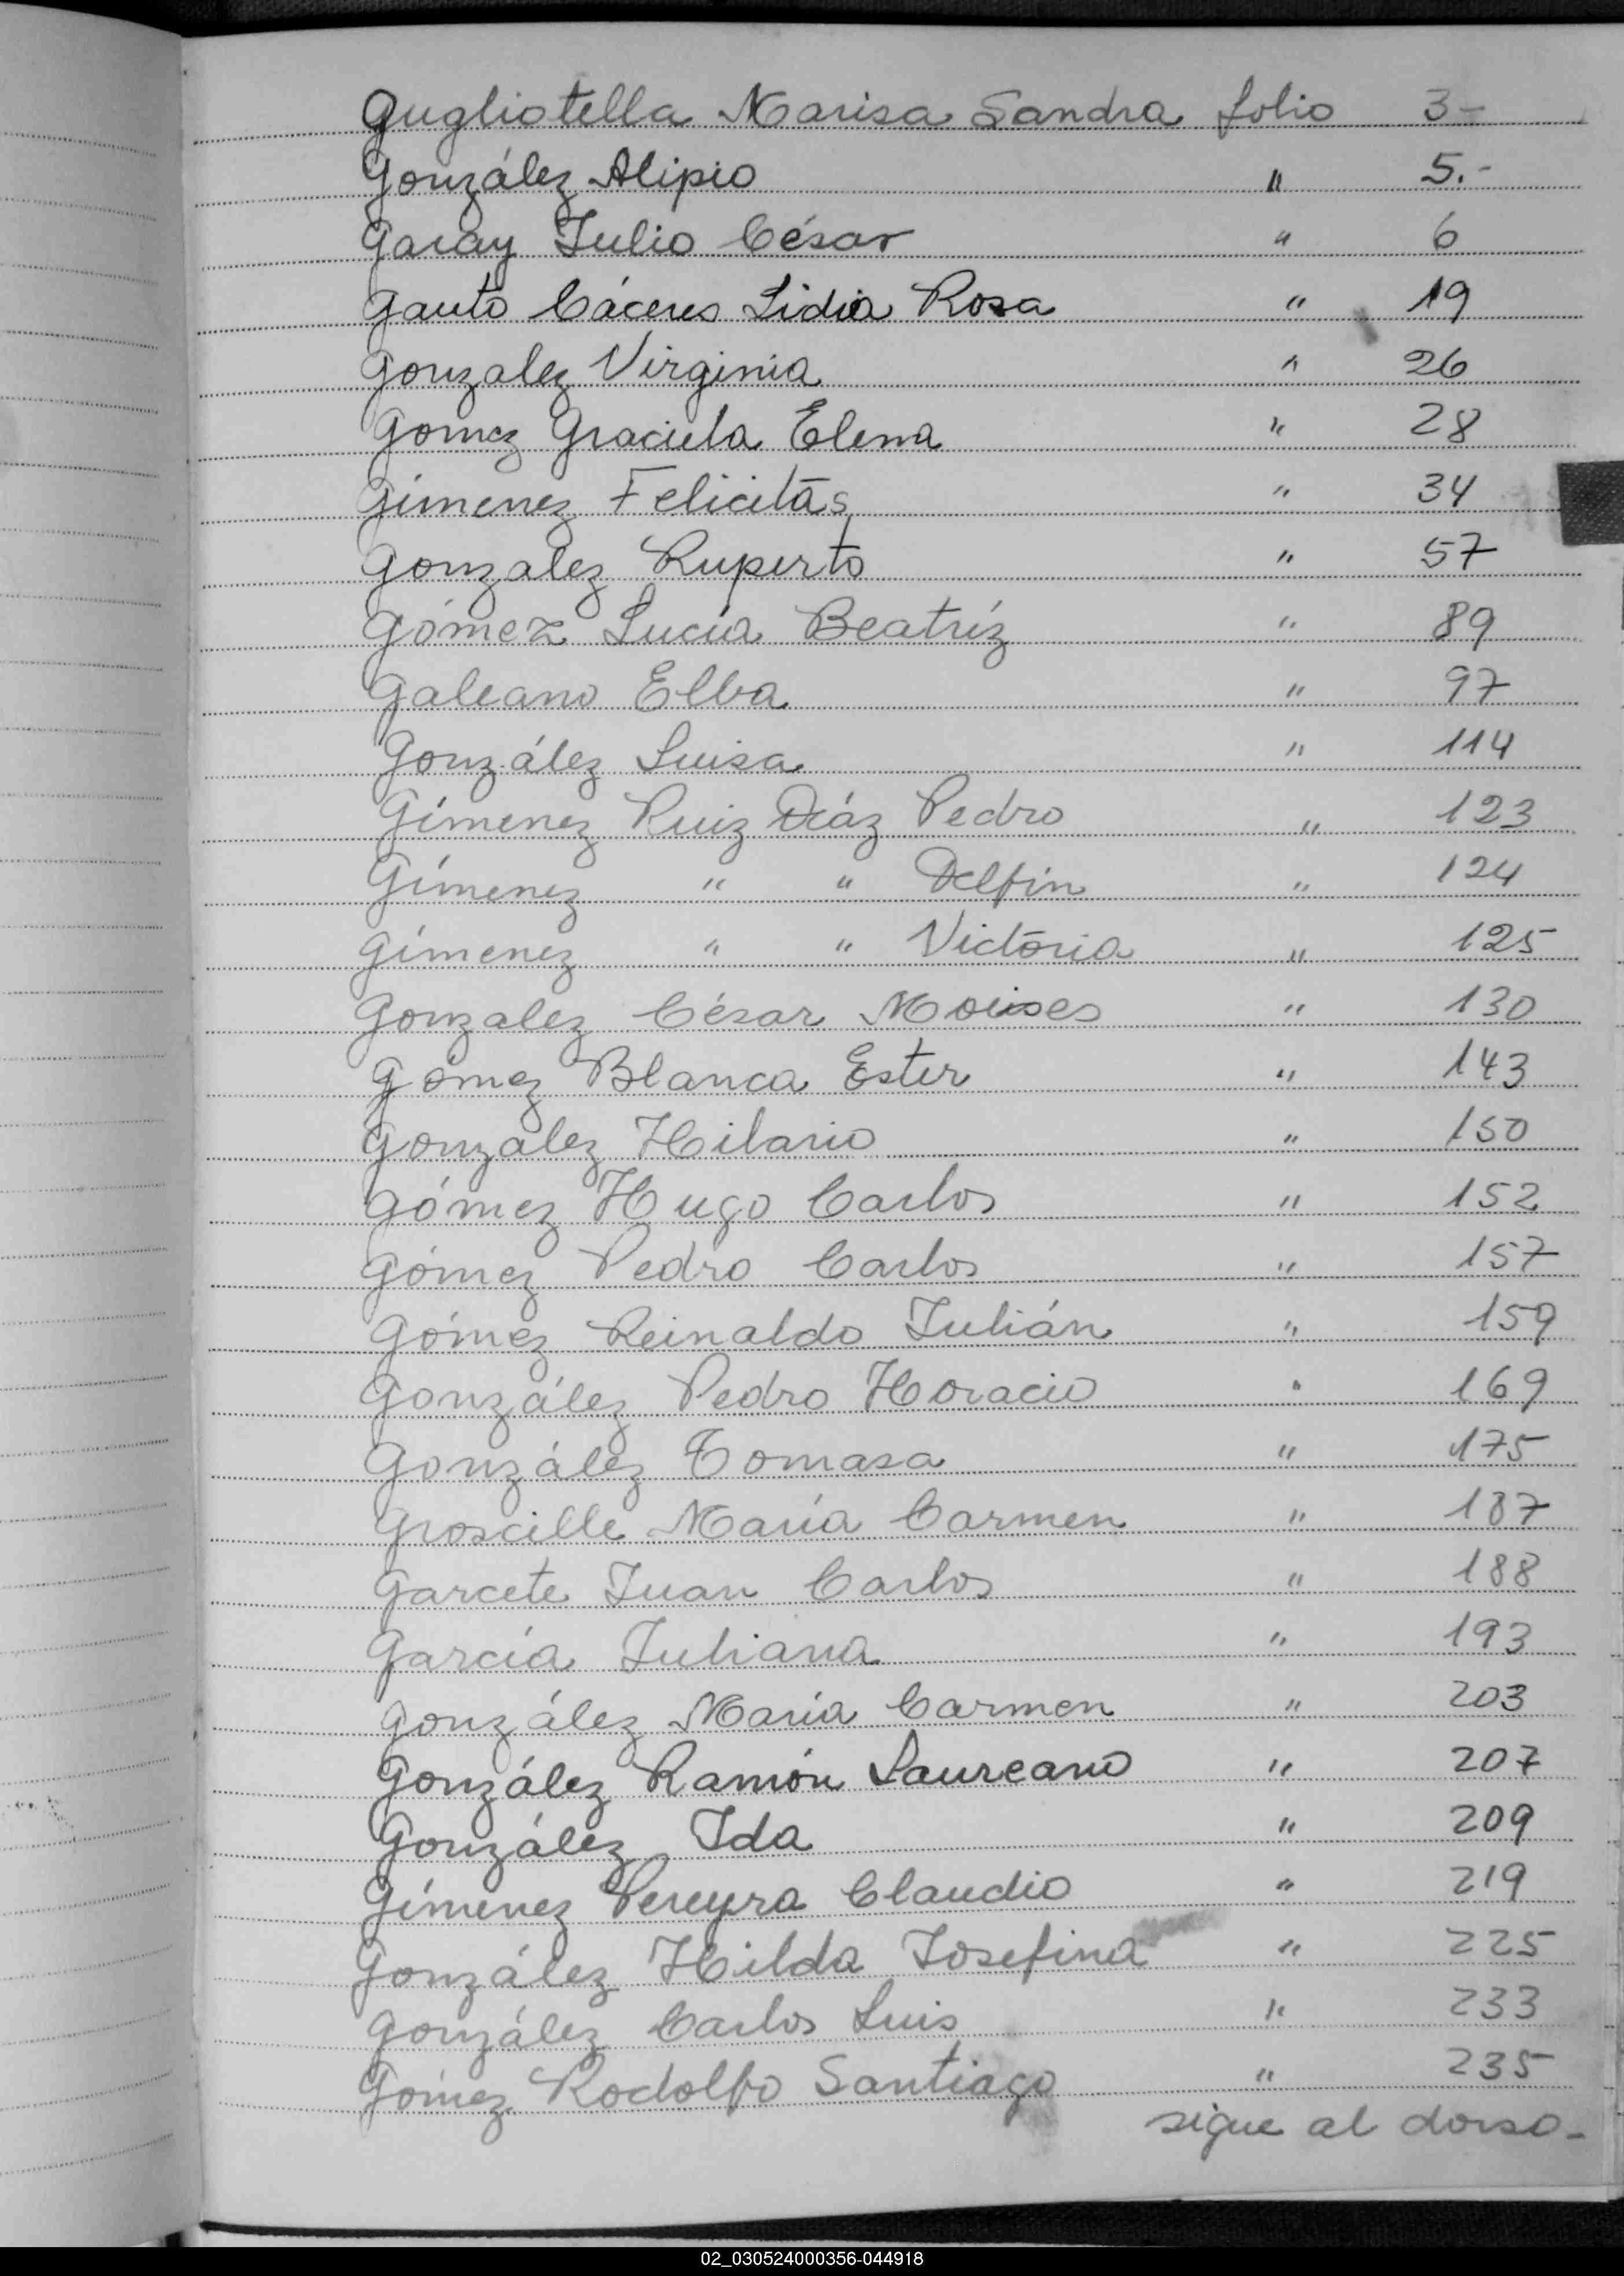 Gugliotella Marisa Sandra folio 3-
González Alipio " 5.-
Garay Julio César " 6
Gauto Cáceres Lidia Rosa " 19
Gonzalez Virginia " 26
Gomez Graciela Elena " 28
Gimenez Felicitás " 34
Gonzalez Ruperto " 57
Gómez Lucía Beatríz " 89
Galeano Elba " 97
González Luisa " 114
Gímenez Ruiz Díáz Pedro " 123
Gímenez " " Delfin " 124
Gímenez " " Victoria " 125
Gonzalez César Moises " 130
Gómez Blanca Ester " 143
González Hilario " 150
Gómez Hugo Carlos " 152
Gómez Pedro Carlos " 157
Gómez Reinaldo Julián " 159
González Pedro Horacio " 169
González Tomasa " 175
Groscille María Carmen " 187
Garcete Juan Carlos " 188
García Juliana " 193
González María Carmen " 203
González Ramón Laureano " 207
González Ida " 209
Gímenez Pereyra Claudio " 219
González Hilda Josefina " 225
González Carlos Luis " 233
Gómez Rodolfo Santiago " 235
sigue al dorso-
02_030524000356-044918